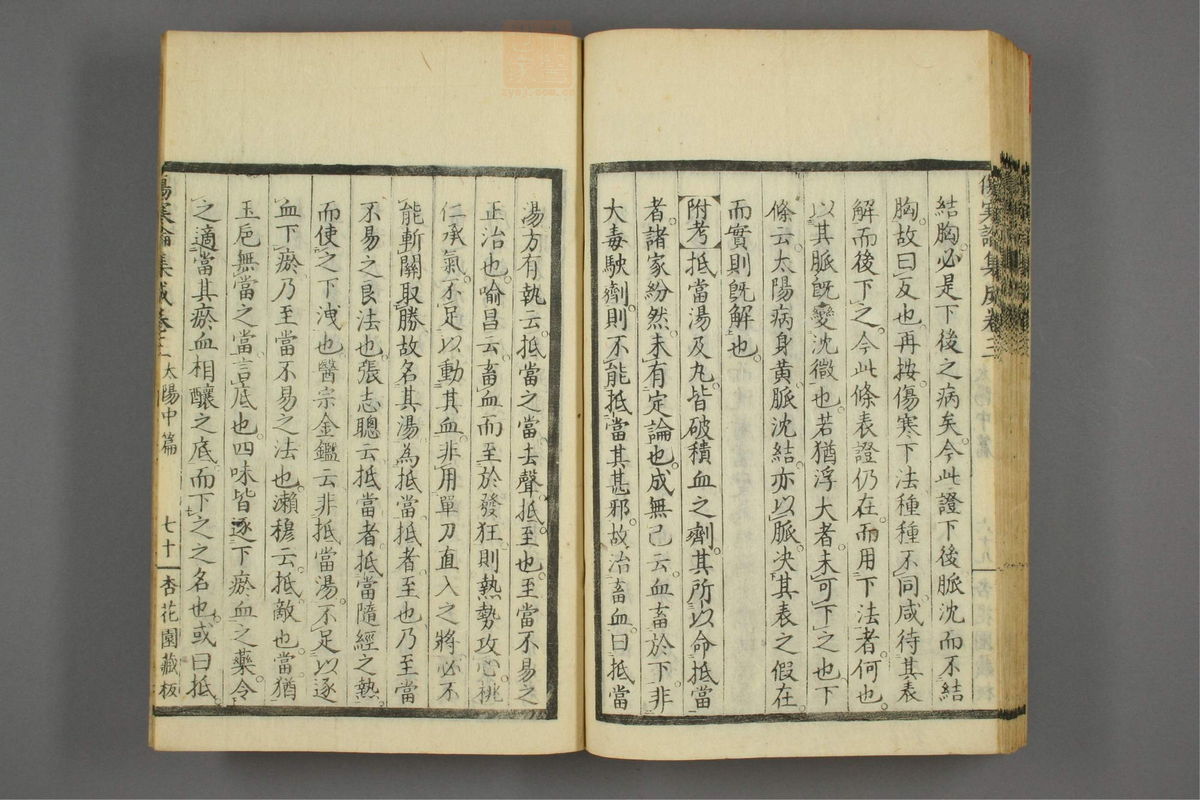 傷寒論集成卷三
結胸必是下後之病矣今此證下後脈沈而不結
胸故曰反也再按傷寒下法種種不同咸待其表
解而後下之今此條表證仍在而用下法者何也
以其脈既變沈微也若猶浮大者未可下之也下
條云太陽病身黃脈沈結亦以脈決其表之假在
而實則既解也
附考 抵當湯及丸皆破積血之劑其所以命抵當
者諸家紛然未有定論也成無己云血畜於下非
大毒駃劑則不能抵當其甚邪故治畜血曰抵當
湯方有執云抵當之當去聲抵至也至當不易之
正治也喻昌云畜血而至於發狂則熱勢攻心桃
仁承氣不足以動其血非用單刀直入之將必不
能斬關取勝故名其湯為抵當抵者至也乃至當
不易之良法也張志聰云抵當者抵當隨經之熱
而使之下洩也醫宗金鑑云非抵當湯不足以逐
血下瘀乃至當不易之法也瀨穆云抵敵也當猶
玉巵無當之當言底也四味皆逐下瘀血之藥令
之適當其瘀血相釀之底而下之之名也或曰抵
傷寒論集成卷三 太陽中篇 七十 杏花園藏板